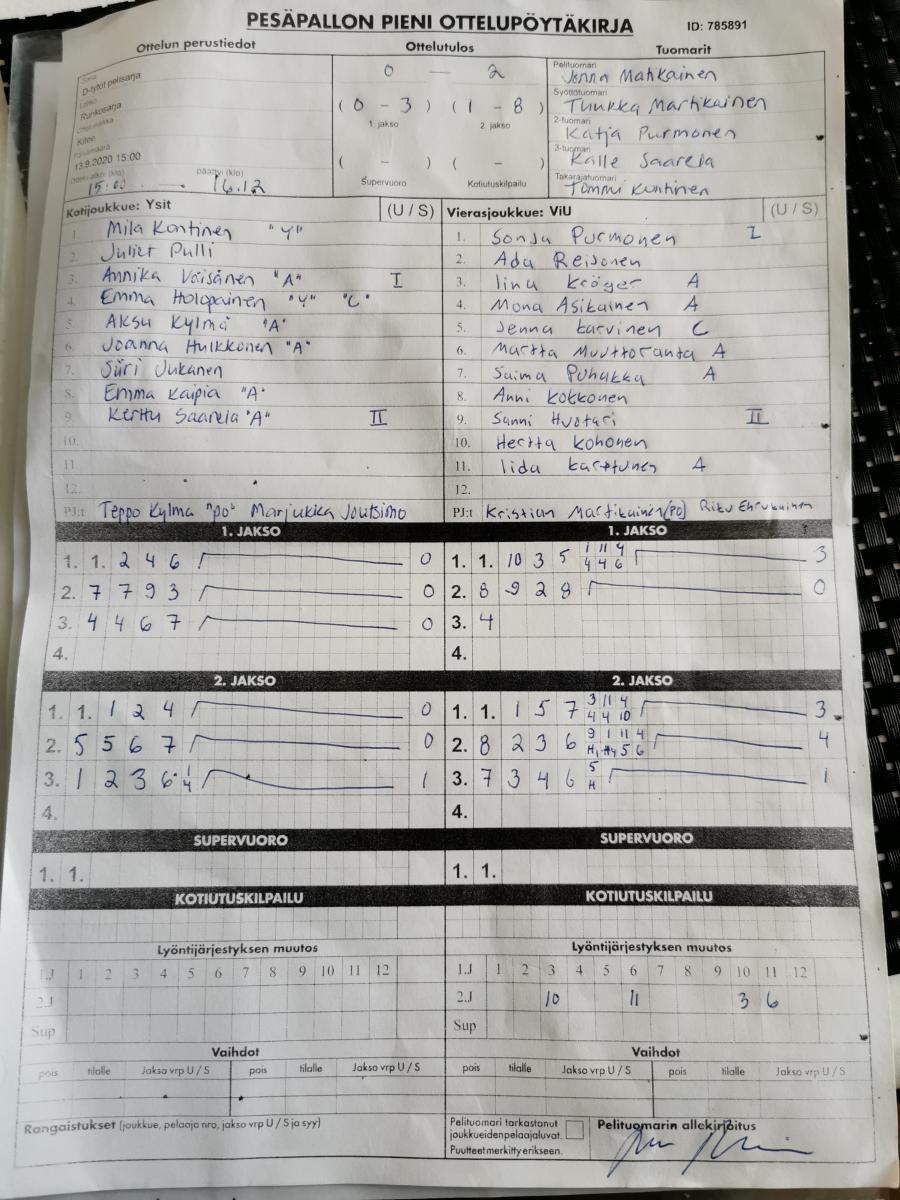 PESÄPALLON PIENI OTTELUPÖYTÄKIRJA ID: 785891
Ottelun perustiedot Ottelutulos Tuomarit
Sarja
D-tytöt pelisarja
Lohko
Runkosarja
Kitee
Päivämäärä
13.9.2020 15:00
Ottelu alkoi (klo) päättyi (klo)
15:00 — 16.12
0 — 2
(0 - 3) (1 - 8)
1. jakso 2. jakso
( - ) ( - )
Supervuoro Kotiutuskilpailu
Pelituomari
Jonna Matikainen
Syöttötuomari
Tuukka Martikainen
2-tuomari
Katja Purmonen
3-tuomari
Kalle Saarela
Takarajatuomari
Tommi Kontinen
Kotijoukkue: Ysit (U / S)
1. Mila Kontinen "Y"
2. Juliet Pulli
3. Annika Väisänen "A" I
4. Emma Holopainen "Y" "C"
5. Aksu Kylmä "A"
6. Joanna Hulkkonen "A"
7. Siiri Jukanen
8. Emma Kaipia "A"
9. Kerttu Saarela "A" II
10.
11.
12.
PJ:t Teppo Kylmä "po" Marjukka Joutsimo
Vierasjoukkue: ViU (U / S)
1. Sonja Purmonen I
2. Ada Reijonen
3. Iina Kröger A
4. Mona Asikainen A
5. Jenna Karvinen C
6. Martta Muuttoranta A
7. Saima Puhakka A
8. Anni Kokkonen
9. Sanni Huotari II
10. Hertta Kohonen
11. Iida Karttunen A
12.
PJ:t Kristian Martikainen (PO) Riku
1. JAKSO
1. 1. 2 4 6 0
2. 7 7 9 3 0
3. 4 4 6 7 0
4.
1. JAKSO
1. 1. 10 3 5 1 11 4 3
4 4 6
2. 8 9 2 8 0
3. 4
4.
2. JAKSO
1. 1. 1 2 4 0
2. 5 5 6 7 0
3. 1 2 3 6 1 1
4
4.
2. JAKSO
1. 1. 1 5 7 3 11 4 3
4 4 10
2. 8 2 3 6 9 1 11 4 4
H 5 6
3. 7 3 4 6 5 1
H
4.
SUPERVUORO
1. 1.
SUPERVUORO
1. 1.
KOTIUTUSKILPAILU
KOTIUTUSKILPAILU
Lyöntijärjestyksen muutos
1.J 1 2 3 4 5 6 7 8 9 10 11 12
2.J
Sup
Lyöntijärjestyksen muutos
1.J 1 2 3 4 5 6 7 8 9 10 11 12
2.J 10 11 3 6
Sup
Vaihdot
pois tilalle Jakso vrp U / S pois tilalle Jakso vrp U / S
Vaihdot
pois tilalle Jakso vrp U / S pois tilalle Jakso vrp U / S
Rangaistukset (joukkue, pelaaja nro, jakso vrp U / S ja syy)
Pelituomari tarkastanut
joukkueidenpelaajaluvat.
Puutteet merkitty erikseen.
Pelituomarin allekirjoitus